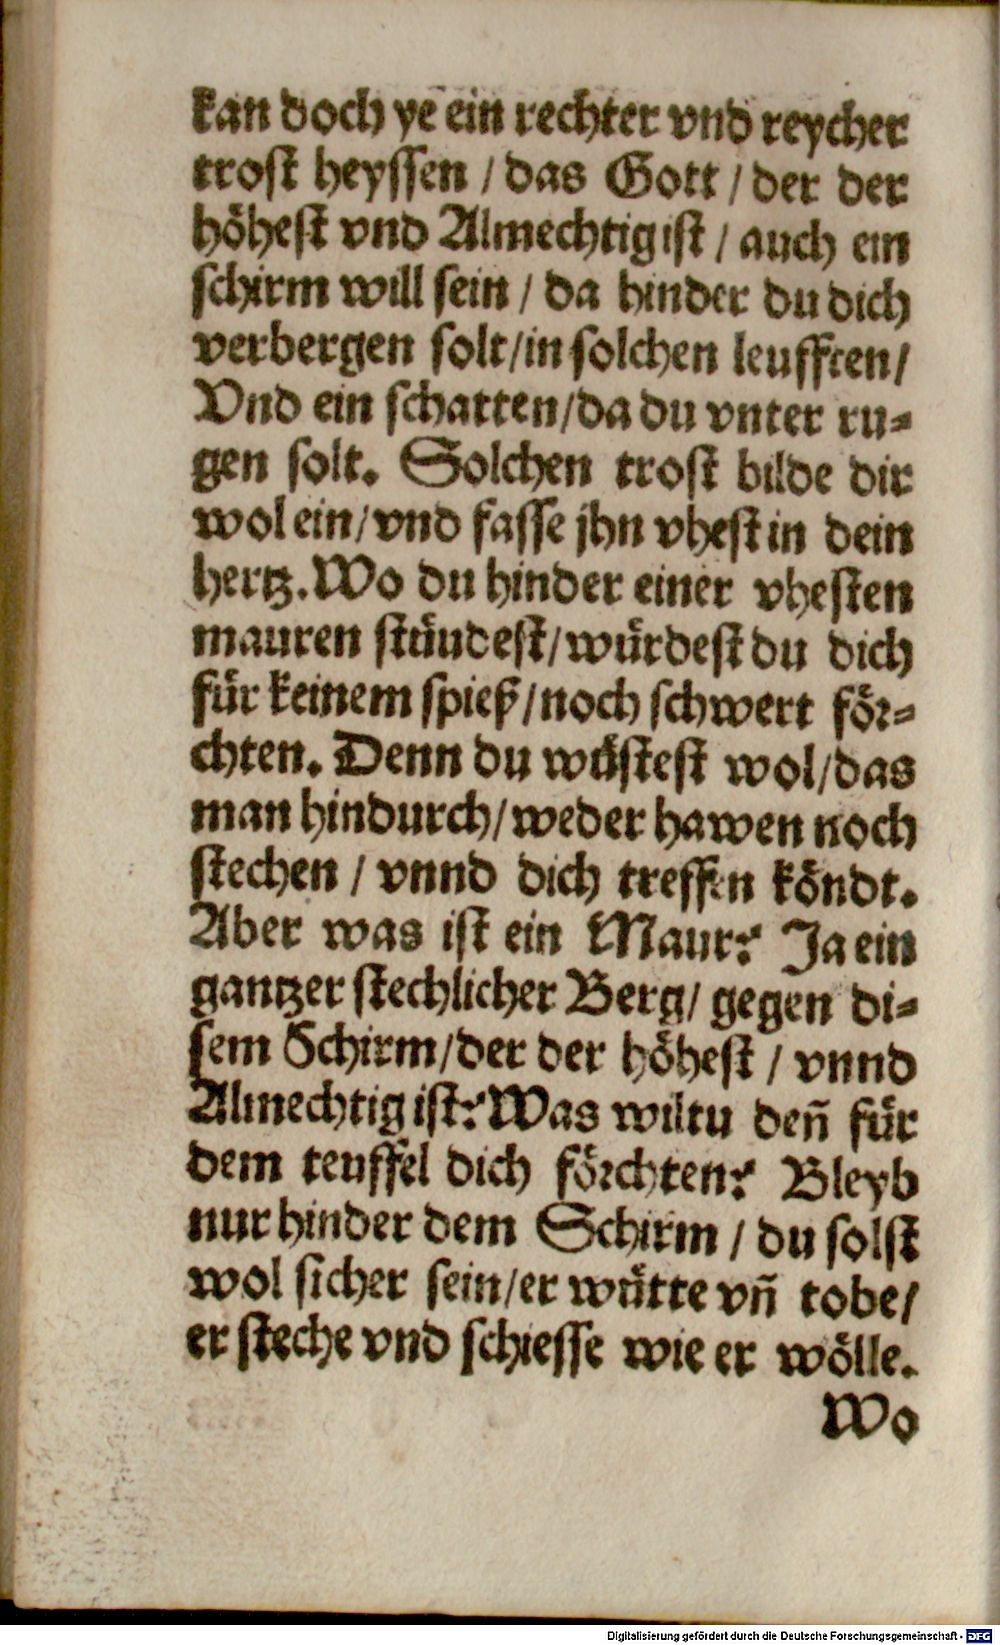 kan doch ye ein rechter vnd reycher
trost heyssen / das Gott / der der
höhest vnd Almechtig ist / auch ein
schirm will sein / da hinder du dich
verbergen solt / in solchen leufften /
Vnd ein schatten / da du vnter ru-
gen solt. Solchen trost bilde dir
wol ein / vnd fasse jhn vhest in dein
hertz. Wo du hinder einer vhesten
mauren stündest / würdest du dich
für keinem spieß / noch schwert för-
chten. Denn du wüstest wol / das
man hindurch / weder hawen noch
stechen / vnnd dich treffen köndt.
Aber was ist ein Maur? Ja ein
gantzer stechlicher Berg / gegen di-
sem Schirm / der der höhest / vnnd
Almechtig ist? Was wiltu den̄ für
dem teuffel dich förchten? Bleyb
nur hinder dem Schirm / du solst
wol sicher sein / er wütte vn̄ tobe /
er steche vnd schiesse wie er wölle.
Wo
Digitalisierung gefördert durch die Deutsche Forschungsgemeinschaft - DFG